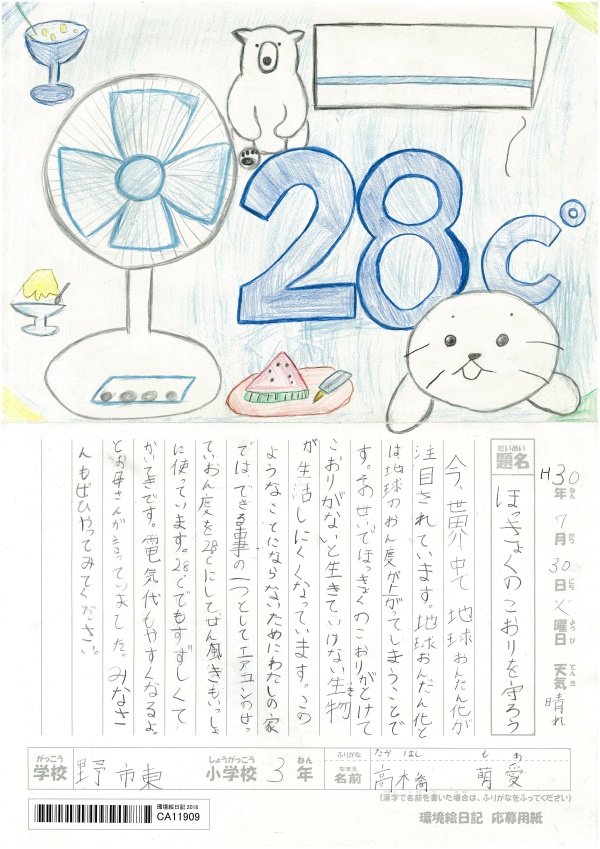 28℃
H30年 7月 30日 火曜日 天気 晴れ
ねん がつ にち ようび てんき
だいめい
題名 ほっきょくのこおりを守ろう
今、世界中で地球おんだん化が
注目されています。地球おんだん化と
は地球のおん度が上がってしまうことで
す。そのせいでほっきょくのこおりがとけて
こおりがないと生きていけない生物
が生活しにくくなっています。この
ようなことにならないためにわたしの家
では、できる事の一つとしてエアコンのせっ
ていおん度を28℃にして、せん風きもいっしょ
に使っています。28℃でもすずしくて
かいてきです。電気代もやすくなるよ。
とお母さんが言っていました。みなさ
んもぜひやってみてください。
がっこう しょうがっこう ねん ふりがな たか はし も あ
学校 野市東 小学校 3年 なまえ 名前 高木喬 萌愛
(漢字で名前を書いた場合は、ふりがなをふってください)
環境絵日記 2018
CA11909
環境絵日記 応募用紙